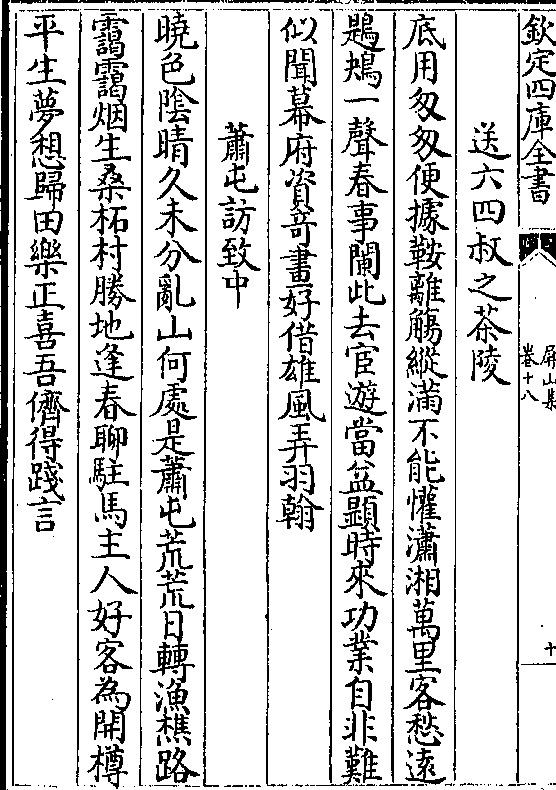 欽定四庫全書
屏山集
卷十八
十
送六四叔之茶陵
底用匆匆便據鞍離觴縱滿不能懽瀟湘萬里客愁遠
鶗鴂一聲春事闌此去宦遊當益顯時來功業自非難
似聞幕府資竒畫好借雄風弄羽翰
蕭屯訪致中
曉色陰晴久未分亂山何處是蕭屯荒荒日轉漁樵路
靄靄烟生桑柘村勝地逢春聊駐馬主人好客為開樽
平生夢想歸田樂正喜吾儕得踐言